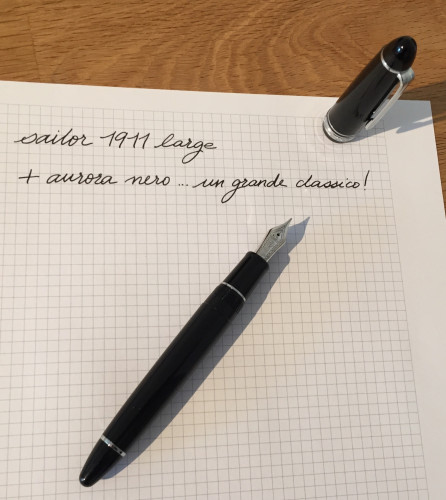 sailor 1911 large
+ aurora nero ... un grande classico!